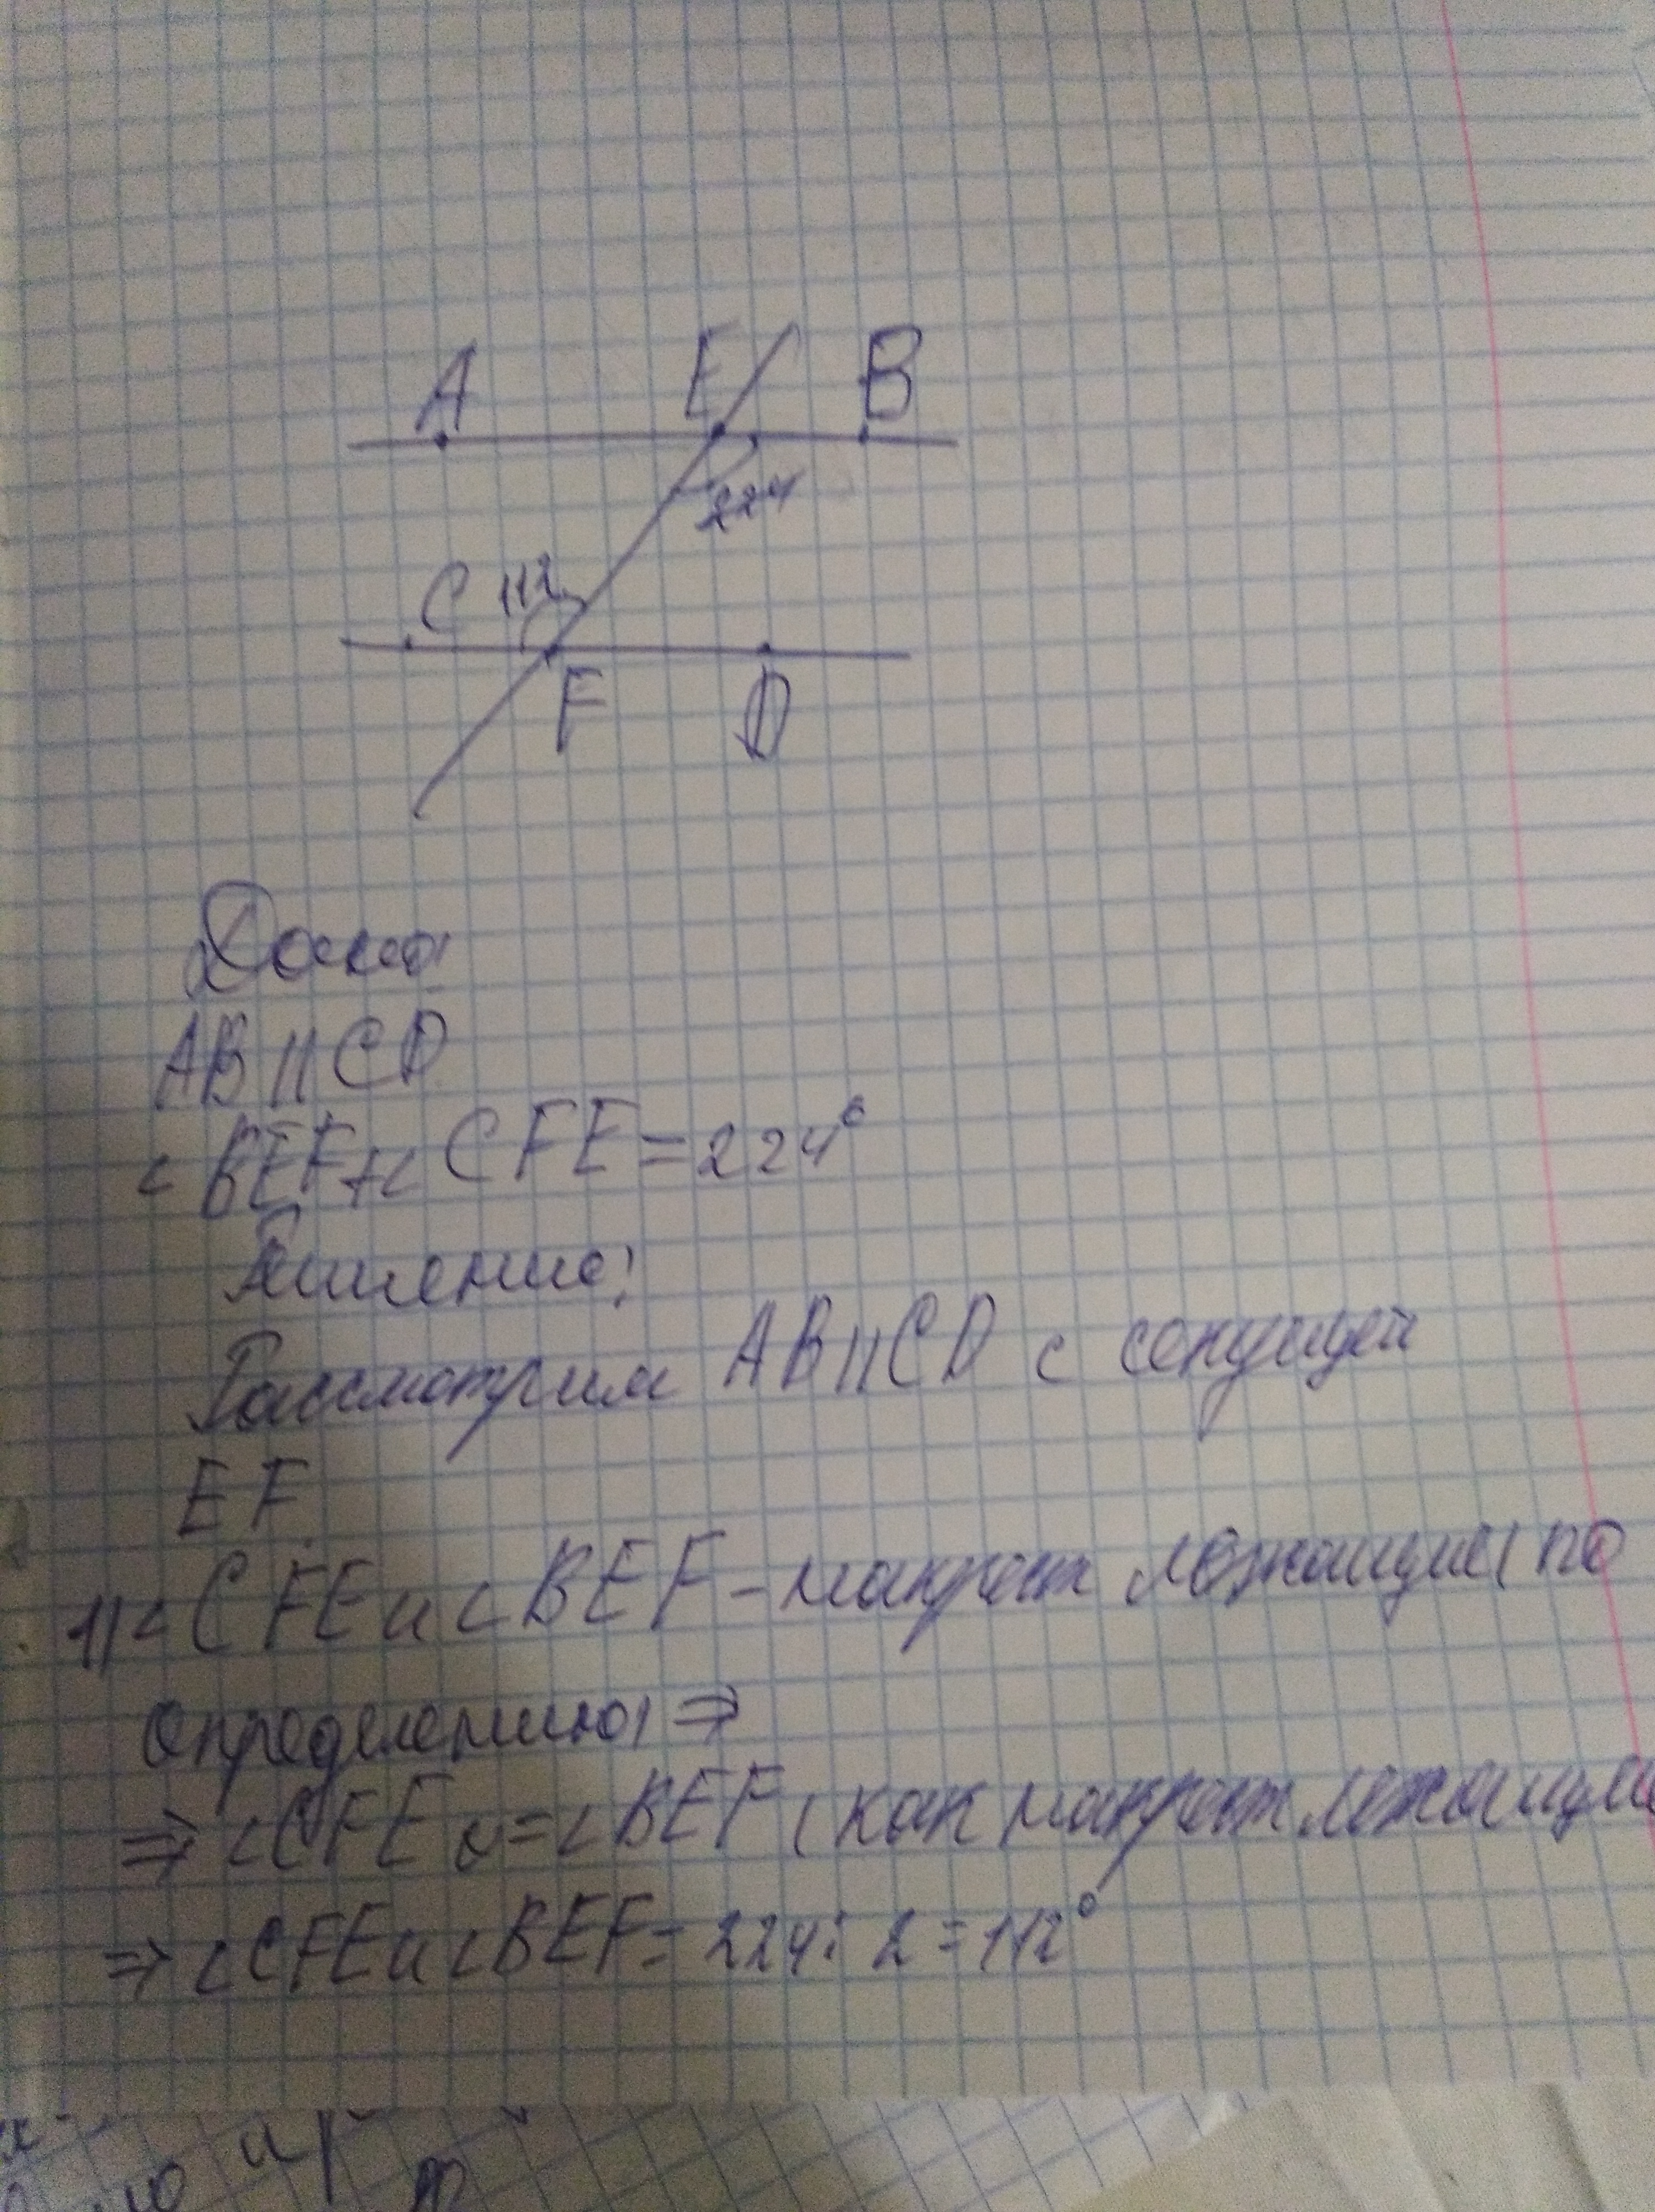 A E B
224
C 112
F D
Дано
AB || CD
< BEF + < CFE = 224°
Решение:
Рассмотрим AB || CD с секущей
EF
1) < CFE и < BEF - накрест лежащие (по
определению) ⇒
⇒ < CFE = < BEF (как накрест лежащие
⇒ < CFE и < BEF = 224 : 2 = 112°